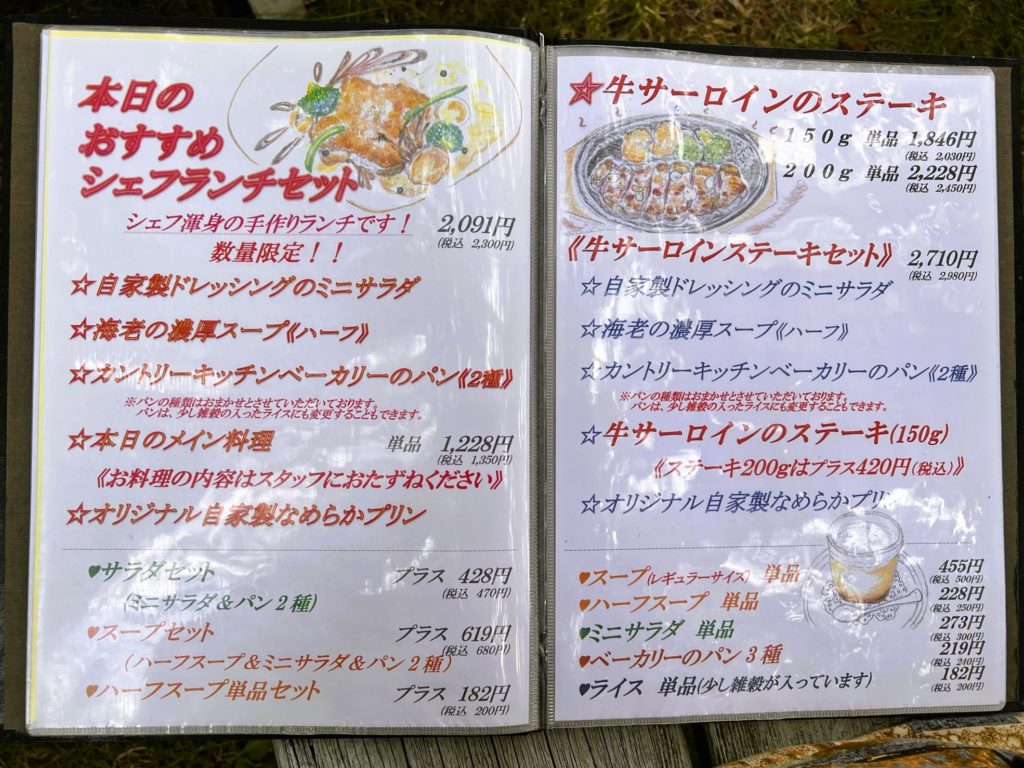 本日の
おすすめ
シェフランチセット
シェフ渾身の手作りランチです！ 2,091円
(税込 2,300円)
数量限定！！
☆自家製ドレッシングのミニサラダ
☆海老の濃厚スープ《ハーフ》
☆カントリーキッチンベーカリーのパン《2種》
※パンの種類はおまかせとさせていただいております。
パンは、少し雑穀の入ったライスにも変更することもできます。
☆本日のメイン料理 単品 1,228円
(税込 1,350円)
《お料理の内容はスタッフにおたずねください》
☆オリジナル自家製なめらかプリン
♥サラダセット プラス 428円
(税込 470円)
(ミニサラダ＆パン２種)
♥スープセット プラス 619円
(税込 680円)
(ハーフスープ＆ミニサラダ＆パン２種)
♥ハーフスープ単品セット プラス 182円
(税込 200円)
☆牛サーロインのステーキ
１５０ｇ 単品 1,846円
(税込 2,030円)
２００ｇ 単品 2,228円
(税込 2,450円)
《牛サーロインステーキセット》 2,710円
(税込 2,980円)
☆自家製ドレッシングのミニサラダ
☆海老の濃厚スープ《ハーフ》
☆カントリーキッチンベーカリーのパン《2種》
※パンの種類はおまかせとさせていただいております。
パンは、少し雑穀の入ったライスにも変更することもできます。
☆牛サーロインのステーキ(150g)
《ステーキ200gはプラス420円(税込)》
☆オリジナル自家製なめらかプリン
♥スープ(レギュラーサイズ) 単品 455円
(税込 500円)
♥ハーフスープ 単品 228円
(税込 250円)
♥ミニサラダ 単品 273円
(税込 300円)
♥ベーカリーのパン３種 219円
(税込 240円)
♥ライス 単品(少し雑穀が入っています) 182円
(税込 200円)